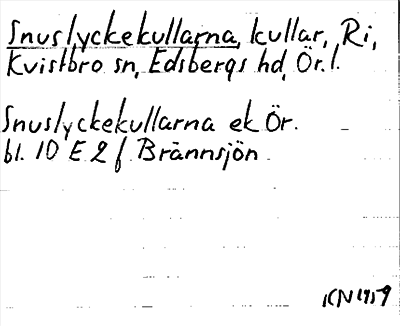 Snuslyckekullarna, kullar, Ri,
Kvistbro sn, Edsbergs hd, Ör. l.
Snuslyckekullarna ek Ör.
bl. 10 E 2 f Brännsjön.
KN 1959